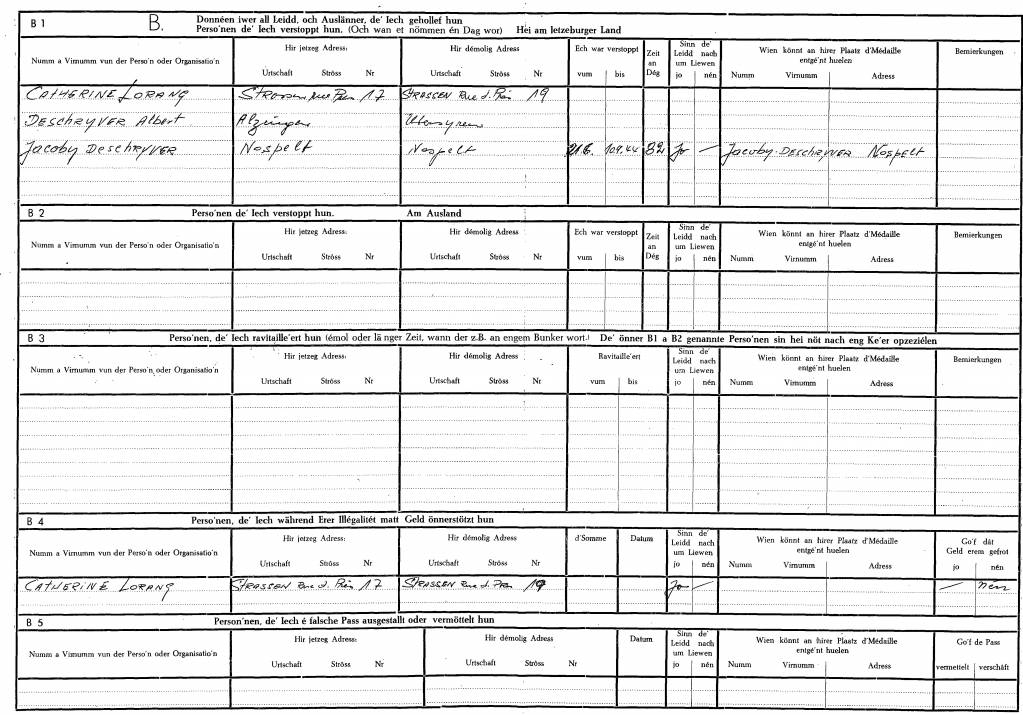 B 1 B. Donnéen iwer all Leidd, och Auslänner, de' Iech gehollef hun
Perso'nen de' Iech verstoppt hun. (Och wan et nömmen én Dag wor) Hei am letzeburger Land
Numm a Virnumm vun der Perso'n oder Organisatio'n Hir jetzeg Adress: Hir démolig Adress Ech war verstoppt Zeit an Dég Sinn de' Leidd nach um Liewen Wien könnt an hirer Plaatz d'Médaille entgé'nt huelen Bemierkungen
Urtschaft Ströss Nr Urtschaft Ströss Nr vum bis jo nén Numm Virnumm Adress
CATHERINE LORANG STRASSEN rue 17 STRASSEN Rue d. 19
DESCHRYVER Albert Alzingen
Jacoby DESCHRYVER Nospelt Nospelt 82 Jo — Jacoby-DESCHRYVER NOSPELT
B 2 Perso'nen de' Iech verstoppt hun. Am Ausland
Numm a Virnumm vun der Perso'n oder Organisatio'n Hir jetzeg Adress: Hir démolig Adress Ech war verstoppt Zeit an Dég Sinn de' Leidd nach um Liewen Wien könnt an hirer Plaatz d'Médaille entgé'nt huelen Bemierkungen
Urtschaft Ströss Nr Urtschaft Ströss Nr vum bis jo nén Numm Virnumm Adress
B 3 Perso'nen, de' Iech ravitaille'ert hun (émol oder länger Zeit, wann der z.B. an engem Bunker wort.) De' önner B1 a B2 genannte Perso'nen sin hei nöt nach eng Ke'er opzeziélen
Numm a Virnumm vun der Perso'n oder Organisatio'n Hir jetzeg Adress: Hir démolig Adress Ravitaille'ert Sinn de' Leidd nach um Liewen Wien könnt an hirer Plaatz d'Médaille entgé'nt huelen Bemierkungen
Urtschaft Ströss Nr Urtschaft Ströss Nr vum bis jo nén Numm Virnumm Adress
B 4 Perso'nen, de' Iech während Erer Illégalitét matt Geld önnerstötzt hun
Numm a Virnumm vun der Perso'n oder Organisatio'n Hir jetzeg Adress: Hir démolig Adress d'Somme Datum Sinn de' Leidd nach um Liewen Wien könnt an hirer Plaatz d'Médaille entgé'nt huelen Go'f dát Geld erem gefrot
Urtschaft Ströss Nr Urtschaft Ströss Nr jo nén Numm Virnumm Adress jo nén
CATHERINE LORANG STRASSEN Rue d. 17 STRASSEN Rue d. 19 Jo — — nén
B 5 Person'nen, de' Iech é falsche Pass ausgestallt oder vermöttelt hun
Numm a Virnumm vun der Perso'n oder Organisatio'n Hir jetzeg Adress: Hir démolig Adress Datum Sinn de' Leidd nach um Liewen Wien könnt an hirer Plaatz d'Médaille entgé'nt huelen Go'f de Pass
Urtschaft Ströss Nr Urtschaft Ströss Nr jo nén Numm Virnumm Adress vermettelt verschäft